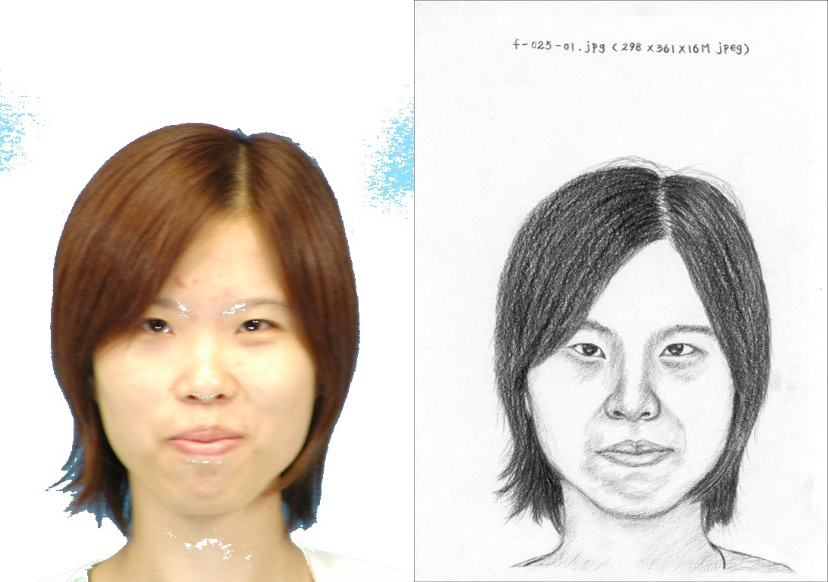 f-025-01.jpg (298 x361x16M jpeg)